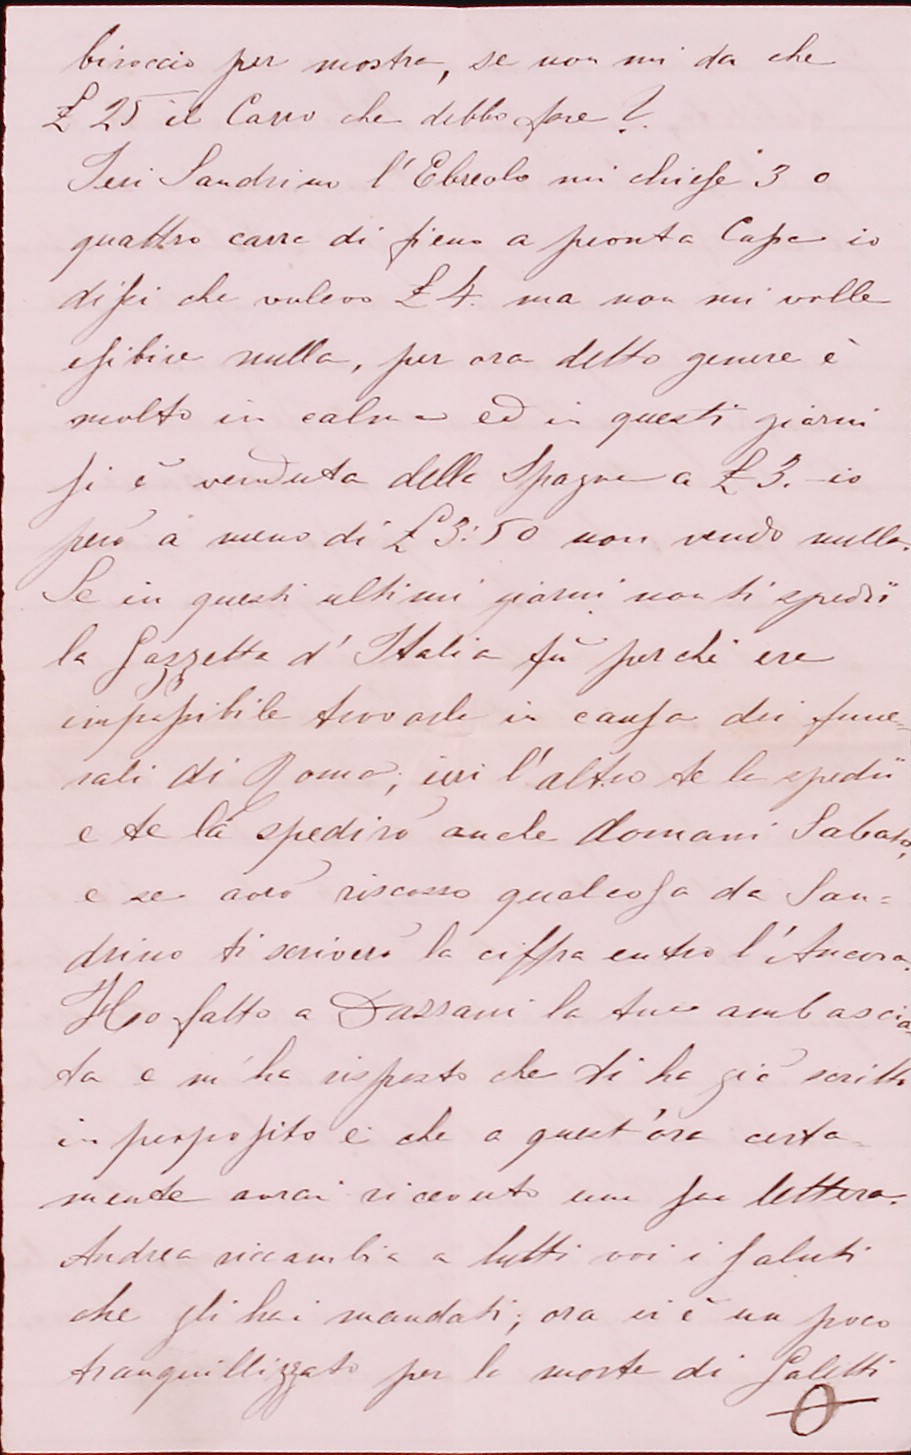 biroccio per mostra, se non mi da che
£ 25 il Carro che debbo fare?
Ieri Sandrino l'Ebreolo mi chiese 3 o
quattro carra di fieno a pronta Cassa io
dissi che volevo £ 4. ma non mi volle
esibire nulla, per ora detto genere è
molto in calma ed in questi giorni
si è venduta della Spagna a £ 3. io
però a meno di £ 3:50 non vendo nulla.
Se in questi ultimi giorni non ti spedii
la Gazzetta d'Italia fù perchè era
impossibile trovarla in causa dei fune=
rali di Roma; ieri l'altro te la spedii
e te la spedirò anche domani Sabato,
e se avrò riscosso qualcosa da San=
drino ti scriverò la ciffra entro l'Ancora.
Ho fatto a Dazzani la tua ambascia=
ta e m'ha risposto che ti ha già scritto
in proposito e che a quest'ora certa=
mente avrai ricevuto una sua lettera.
Andrea riccambia a tutti voi i saluti
che gli hai mandati; ora si è un poco
tranquillizzato per la morte di Galetti